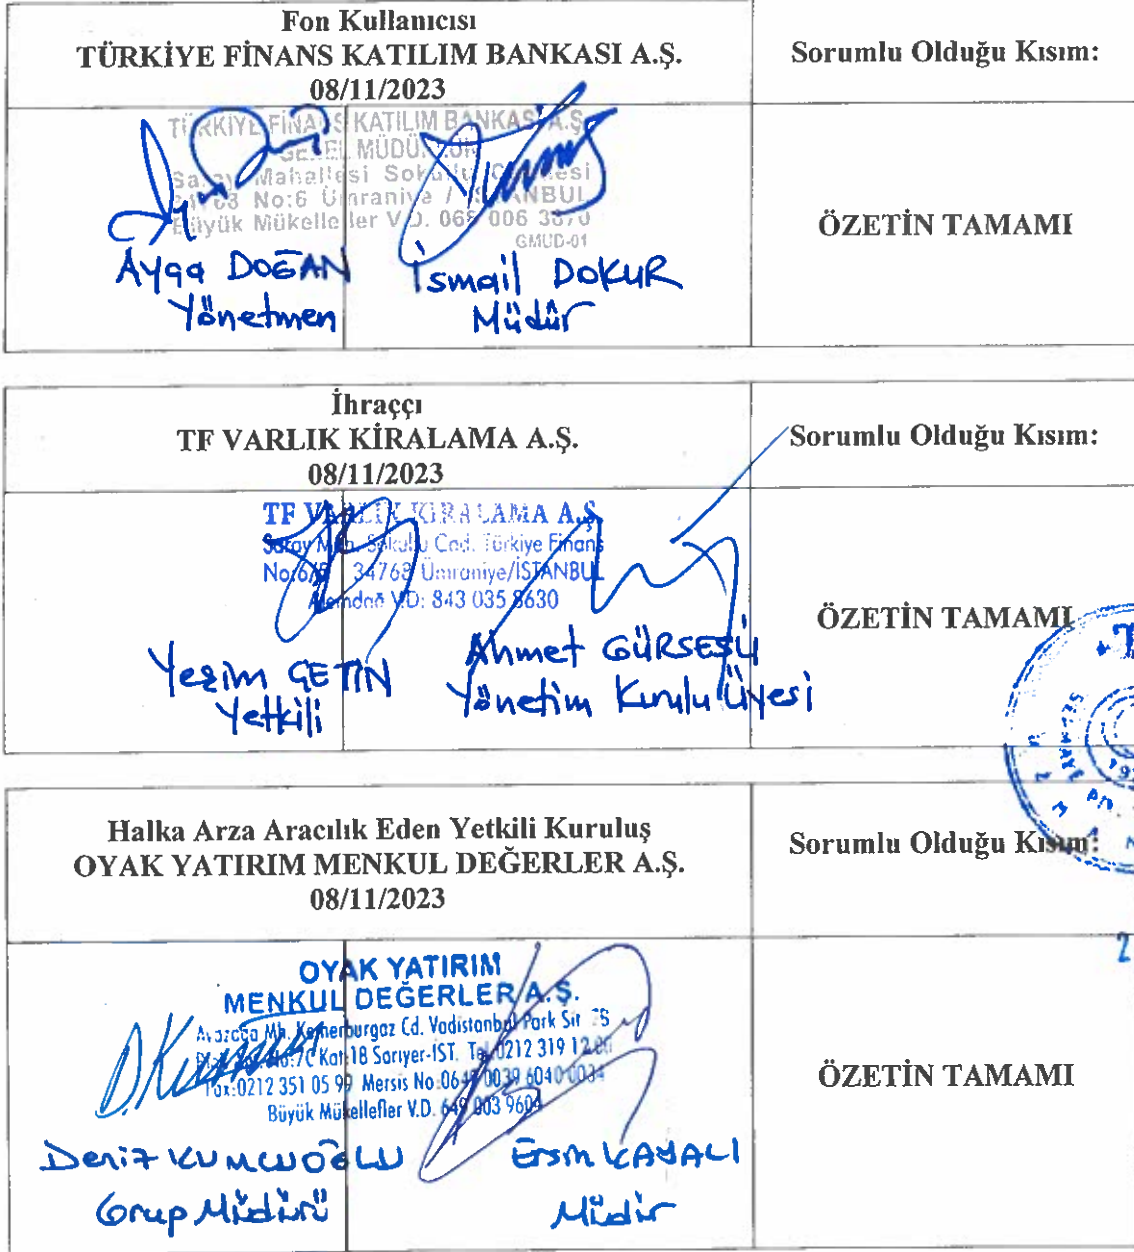 Fon Kullanıcısı
TÜRKİYE FİNANS KATILIM BANKASI A.Ş.
08/11/2023
Sorumlu Olduğu Kısım:
TÜRKİYE FİNANS KATILIM BANKASI A.Ş.
GENEL MÜDÜRLÜK
Saray Mahallesi Sokullu Caddesi
No:6 Ümraniye / İSTANBUL
Büyük Mükellefler V.D. 068 006 3870
GMUD-01
DOĞAN
Yönetmen
İsmail DOKUR
Müdür
ÖZETİN TAMAMI
İhraççı
TF VARLIK KİRALAMA A.Ş.
08/11/2023
Sorumlu Olduğu Kısım:
TF VARLIK KİRALAMA A.Ş.
Saray Mah. Sokullu Cad. Türkiye Finans
34768 Ümraniye/İSTANBUL
Alemdağ V.D: 843 035 8630
ÇETİN
Yetkili
Ahmet GÜRSESLİ
Yönetim Kurulu Üyesi
ÖZETİN TAMAMI
SERMAYE
Halka Arza Aracılık Eden Yetkili Kuruluş
OYAK YATIRIM MENKUL DEĞERLER A.Ş.
08/11/2023
Sorumlu Olduğu Kısım:
OYAK YATIRIM
MENKUL DEĞERLER A.Ş.
Mh. Kemerburgaz Cd. Vadistanbul Park Sit
Kat:18 Sarıyer-İST. Tel:0212 319 12
Fax:0212 351 05 99 Mersis No:
Büyük Mükellefler V.D. 649 003 9604
Deniz KUMCUOĞLU
Grup Müdürü
Ersin KAYALI
Müdür
ÖZETİN TAMAMI
2